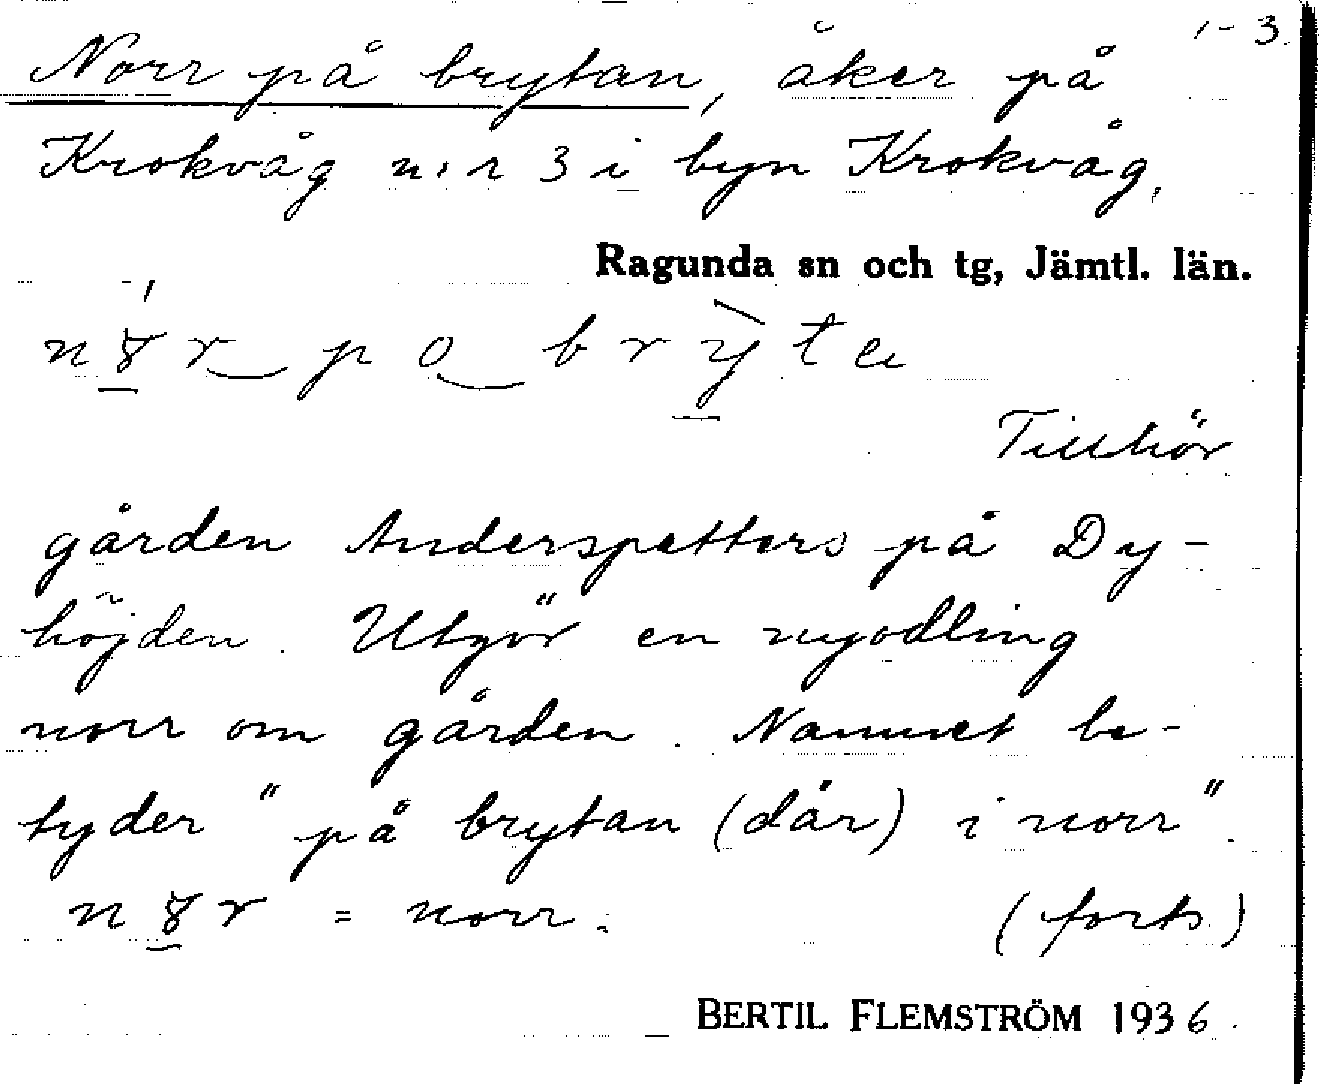 1-3.
Norr på brytan, åker på
Krokvåg n:r 3 i byn Krokvåg,
Ragunda sn och tg, Jämtl. län.
Tillhör
gården Anderspetters på Dy-
höjden. Utgör en nyodling
norr om gården. Namnet be-
tyder "på brytan (där) i norr".
= norr. (forts.)
BERTIL FLEMSTRÖM 1936.